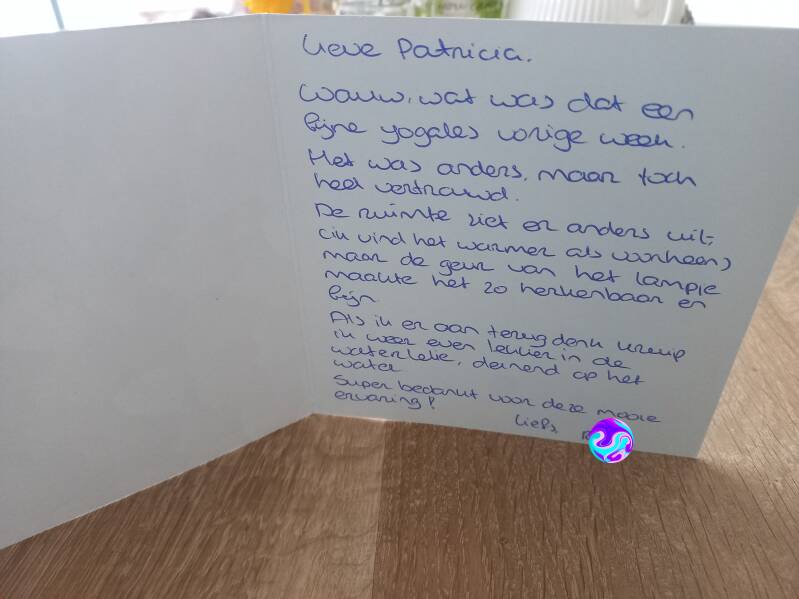 Lieve Patricia.
Wauw, wat was dat een
fijne yogales vorige week.
Het was anders, maar toch
heel vertrouwd.
De ruimte ziet er anders uit,
(ik vind het warmer als voorheen)
maar de geur van het lampie
maakte het zo herkenbaar en
fijn
Als ik er aan terug denk kruip
ik weer even lekker in de
waterlelie, deinend op het
water
Super bedankt voor deze mooie
ervaring!
Liefs